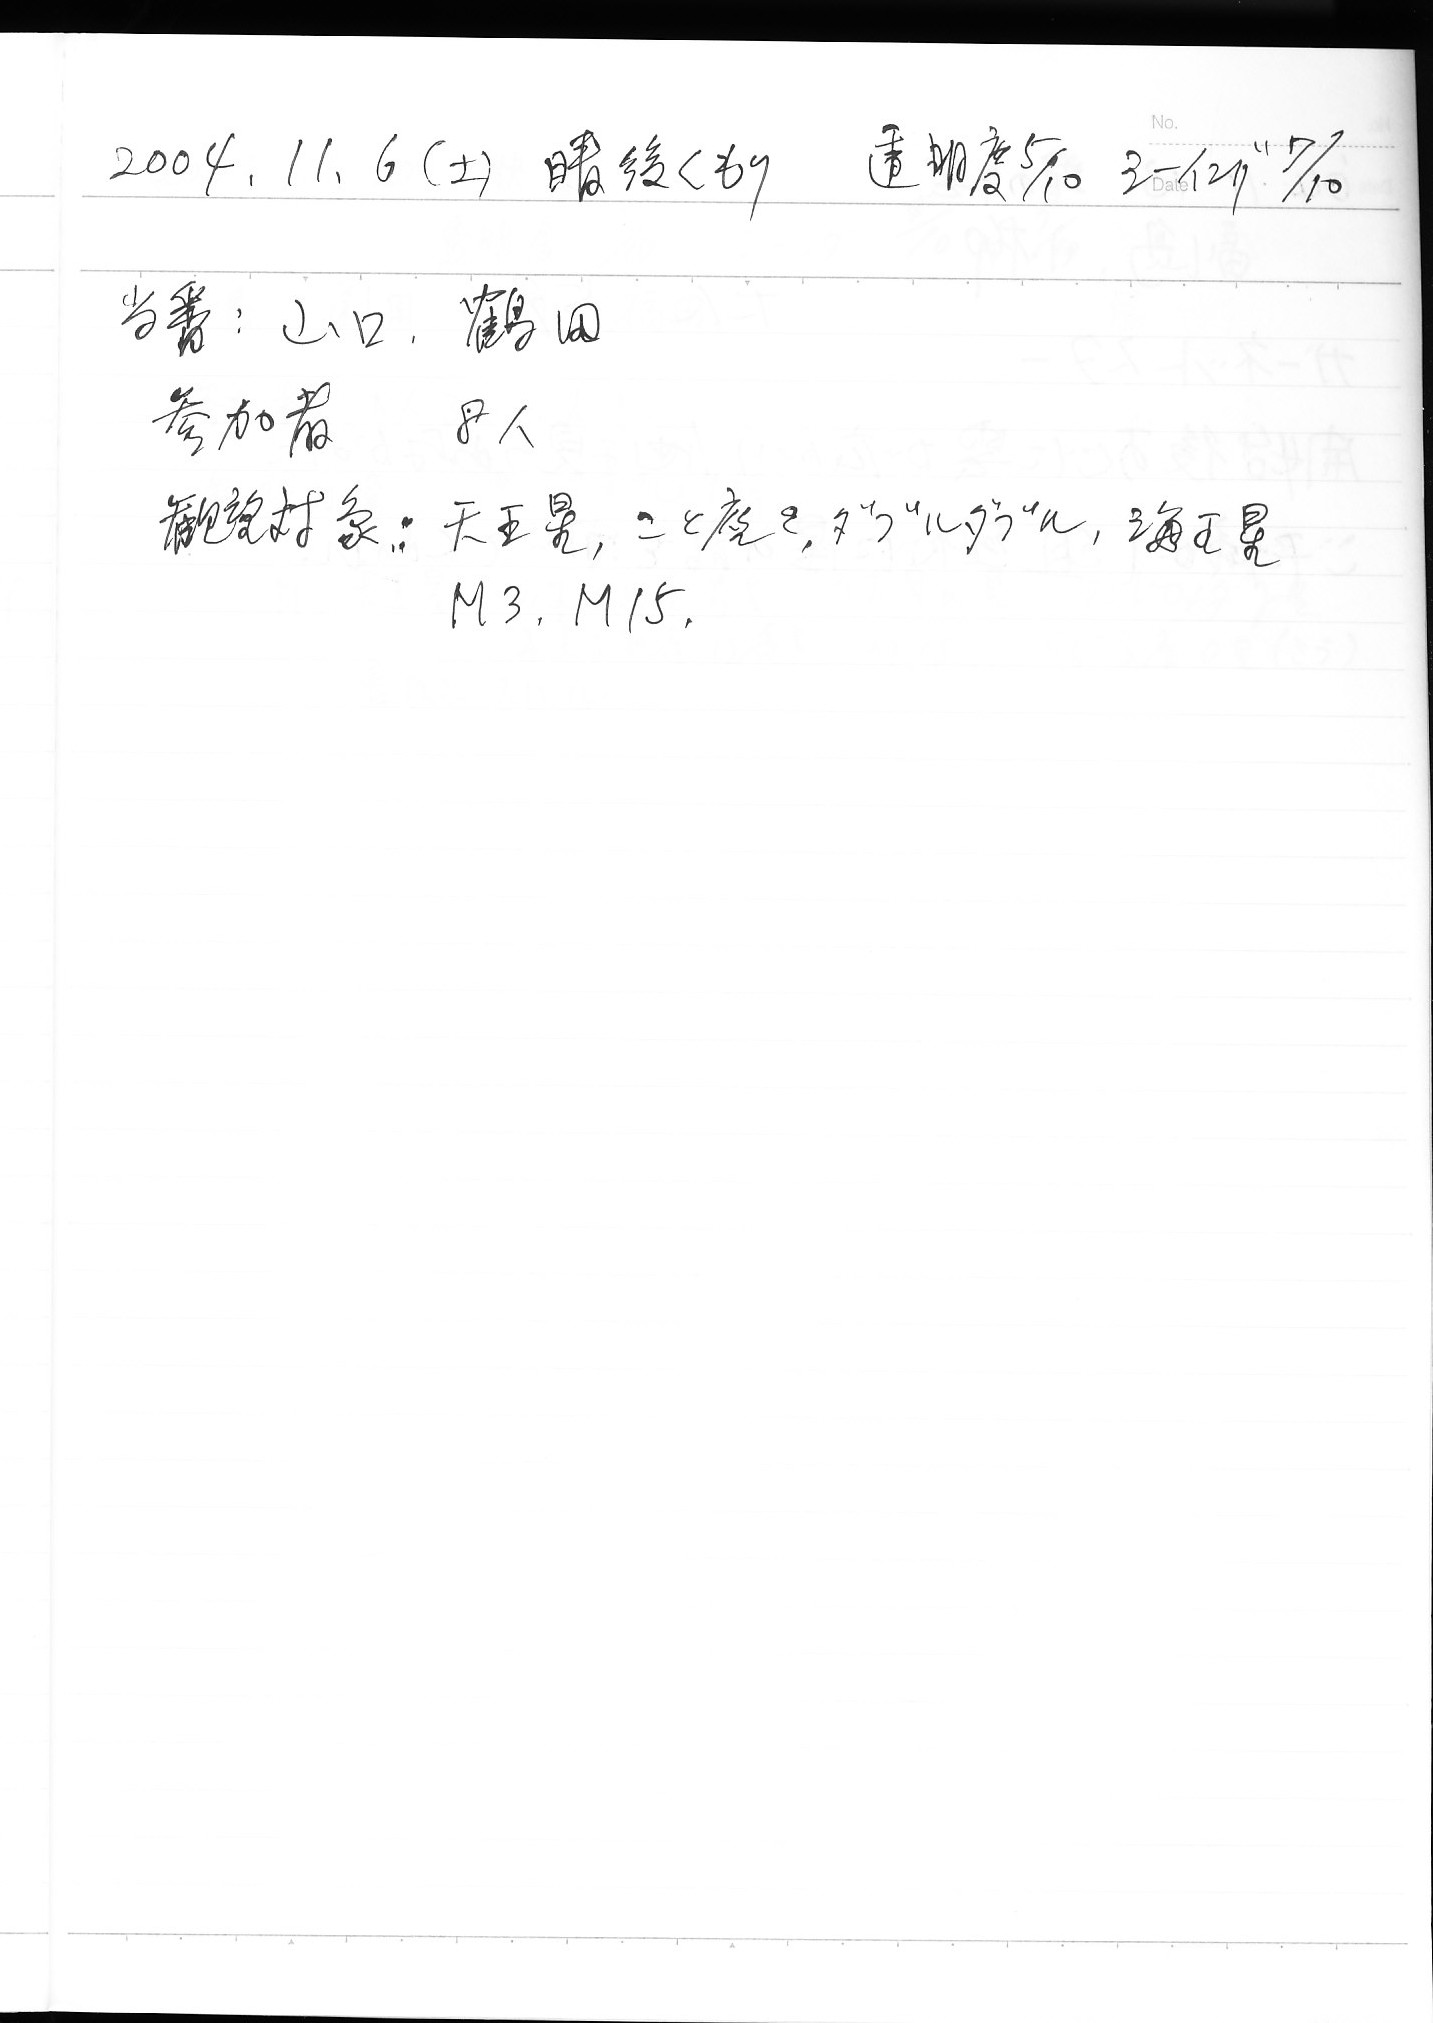 No.
Date
2004.11.6(土) 晴後くもり 透明度5/10 シーイング7/10
当番:山口. 鶴田
参加者 8人
観望対象: 天王星, こと座ε,ダブルダブル, 海王星
M3. M15.